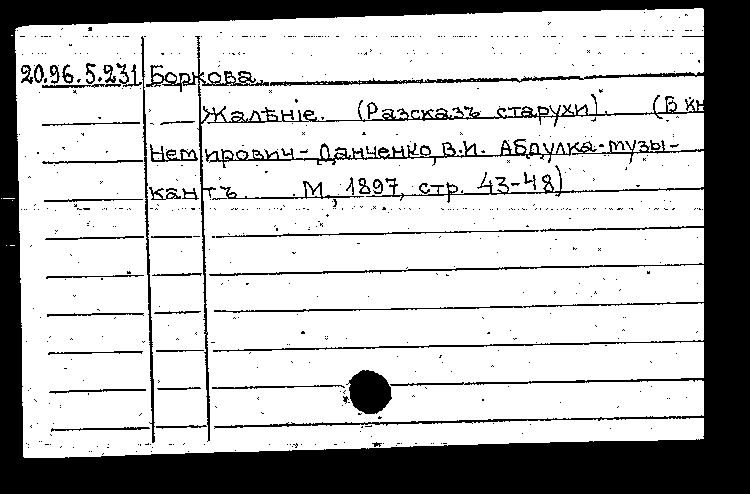 20.96.5.231 Боркова.
Жалѣніе. (Разсказъ старухи). (В кн
Немирович-Данченко, В.И. Абдулка-музы-
кантъ. М., 1897, стр. 43-48)